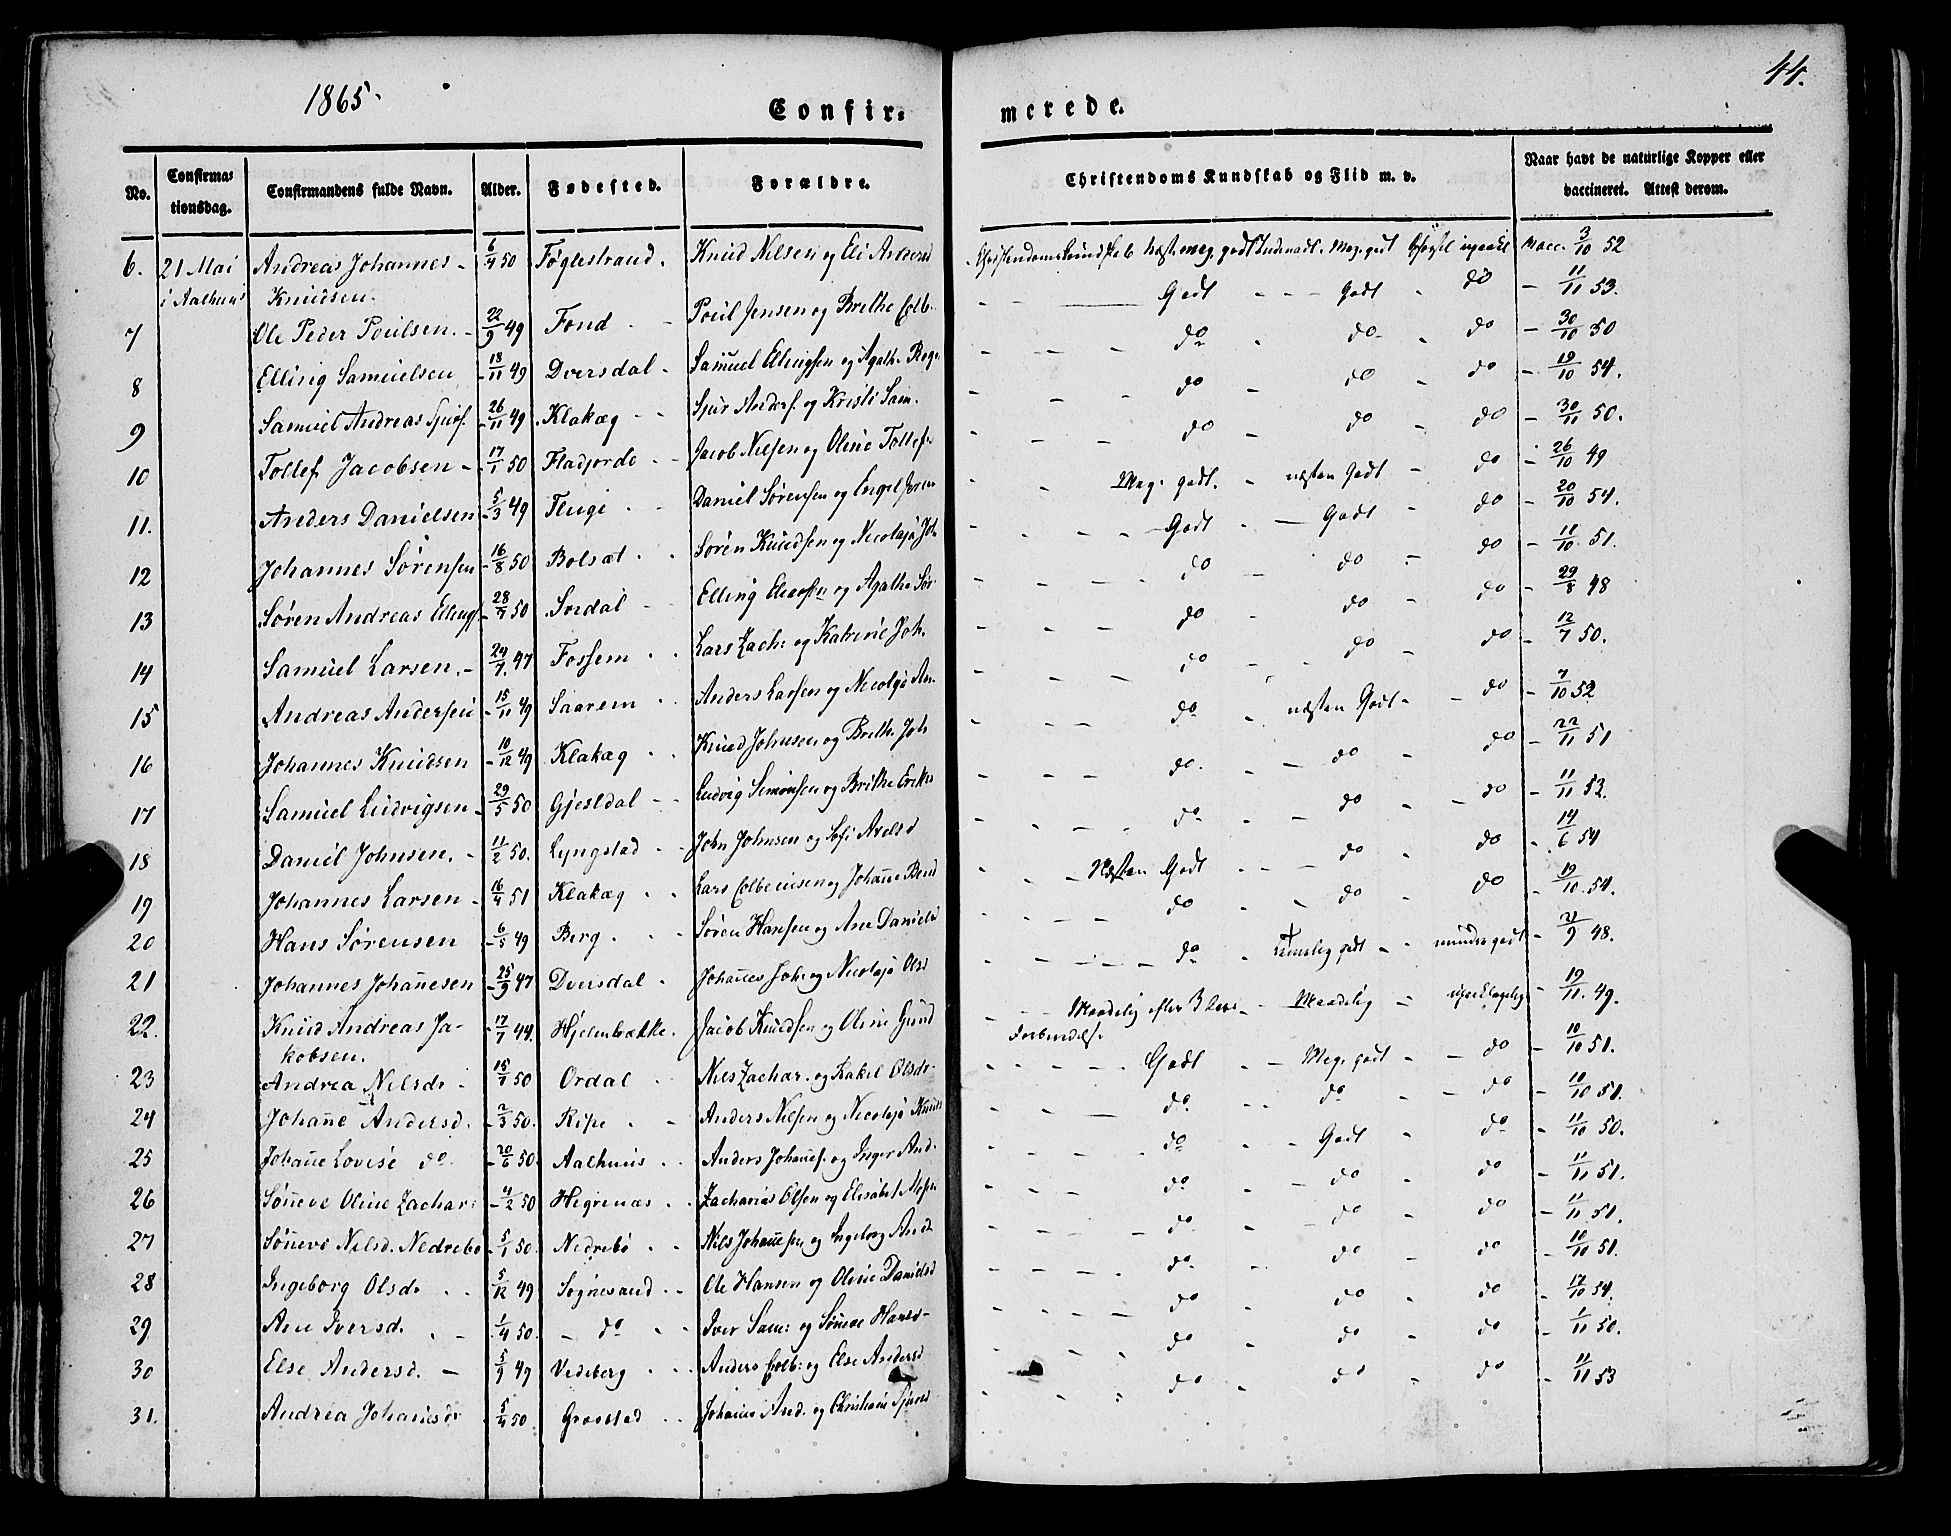 1865.
44.
Confir=
merede.
No. Confirma=tionsdag. Confirmandens fulde Navn. Alder. Fødested. Forældre. Christendoms Kundskab og Flid m. v. Naar havt de naturlige Kopper eller vaccineret. Attest derom.
6. 21 Mai Andreas Johannes 6/4 50 Føglestrand. Knud Nilsen og Eli Andersd Christendomskundskab næst meg. godt Meg. godt Vacc. 3/10 52
i Aalhuus Knudsen. Godt Godt do 11/11 53.
7 Ole Peder Poulsen. 22/9 49 Fond Poul Jensen og Brithe Colb. do do do 30/10 50
8 Elling Samuelsen 18/11 49 Dversdal Samuel Ellingsen og Agathe do do do 19/10 54.
9 Samuel Andreas Sjurs. 26/11 49 Klakæg Sjur Anders. og Kristi Sam. do do do 30/11 50.
10 Tollef Jacobsen 17/1 50 Fladjorde Jacob Nilsen og Oline Tollefs. Meg. godt. næsten Godt do 26/10 49
11. Anders Danielsen 5/3 49 Flugi Daniel Sørensen og Engel Godt Godt do 20/10 54.
12 Johannes Sørensen 16/8 50 Bolsæt Søren Knudsen og Nicolaja Joh do do do 11/10 51.
13 Søren Andreas Ellings 28/7 50 Sordal Elling og Agathe Sør do do do 29/8 48
14 Samuel Larsen. 24/7 47 Fossem Lars Zach: og Katrine Joh. do do do 12/7 50.
15 Andreas Andersen 15/11 49 Saarem Anders Larsen og Nicolga An. do næsten Godt do 7/10 52
16 Johannes Knudsen 10/12 49 Klakæg Knud Johnsen og Brithe Joh do do do 22/11 51
17 Samuel Ludvigsen 29/5 50 Gjesldal Ludvig Simonsen og Brithe do do do 11/11 52.
18 Daniel Johnsen. 11/2 50. Lyngstad John Johnsen og Sofi Axelsd Næsten Godt do do 14/6 54
19 Johannes Larsen 16/4 51 Klakæg Lars Colbeinsen og Johanne Bend do do do 19/10 54.
20 Hans Sørensen 6/5 49 Berg Søren Hansen og Ane Danielsd do Temelig godt mindre godt 21/9 48.
21 Johannes Johannesen 25/9 47 Dversdal Johannes Joh. og Nicolaja Olsd Maadelig efter 3 Maadelig 19/11 49.
22. Knud Andreas Ja- 17/7 44. Hjelmbrække. Jacob Knudsen og Oline Gund Godt Meg. godt do 10/10 51.
kobsen.
23 Andrea Nilsdr 15/1 50 Ordal Nils Zachar. og Rakel Olsdr do do do 10/10 51.
24 Johanne Andersd. 2/3 50. Ripe Anders Nilsen og Nicolaja Knuds do Godt do 11/10 50.
25 Johanne Lovise do 20/6 50. Aalhuus Anders Johannes. og Inger And. do do do 11/11 51.
26 Sønneve Oline Zachar: 4/2 50 Hegrenæs Zacharias Olsen og Elisabet do do do 11/11 51.
27 Sønneve Nilsd. Nedrebø 5/1 50. Nedrebø Nils Johannesen og Ingeborg And. do do do 10/10 51.
28 Ingeborg Olsdr 5/12 49 Sognesand Ole Hansen og Oline Danielsd do do do 17/10 54.
29 Ane Iversd. 1/4 50. do Iver Sam: og Sønneve Hansd- do do do 1/11 50.
30 Else Andersd. 5/9 49 Vedeberg Anders Colb: og Else Andersd do do do 11/11 53
31. Andrea Johannesdr 5/4 50. Graastad Johannes And. og Christiane Sjursd